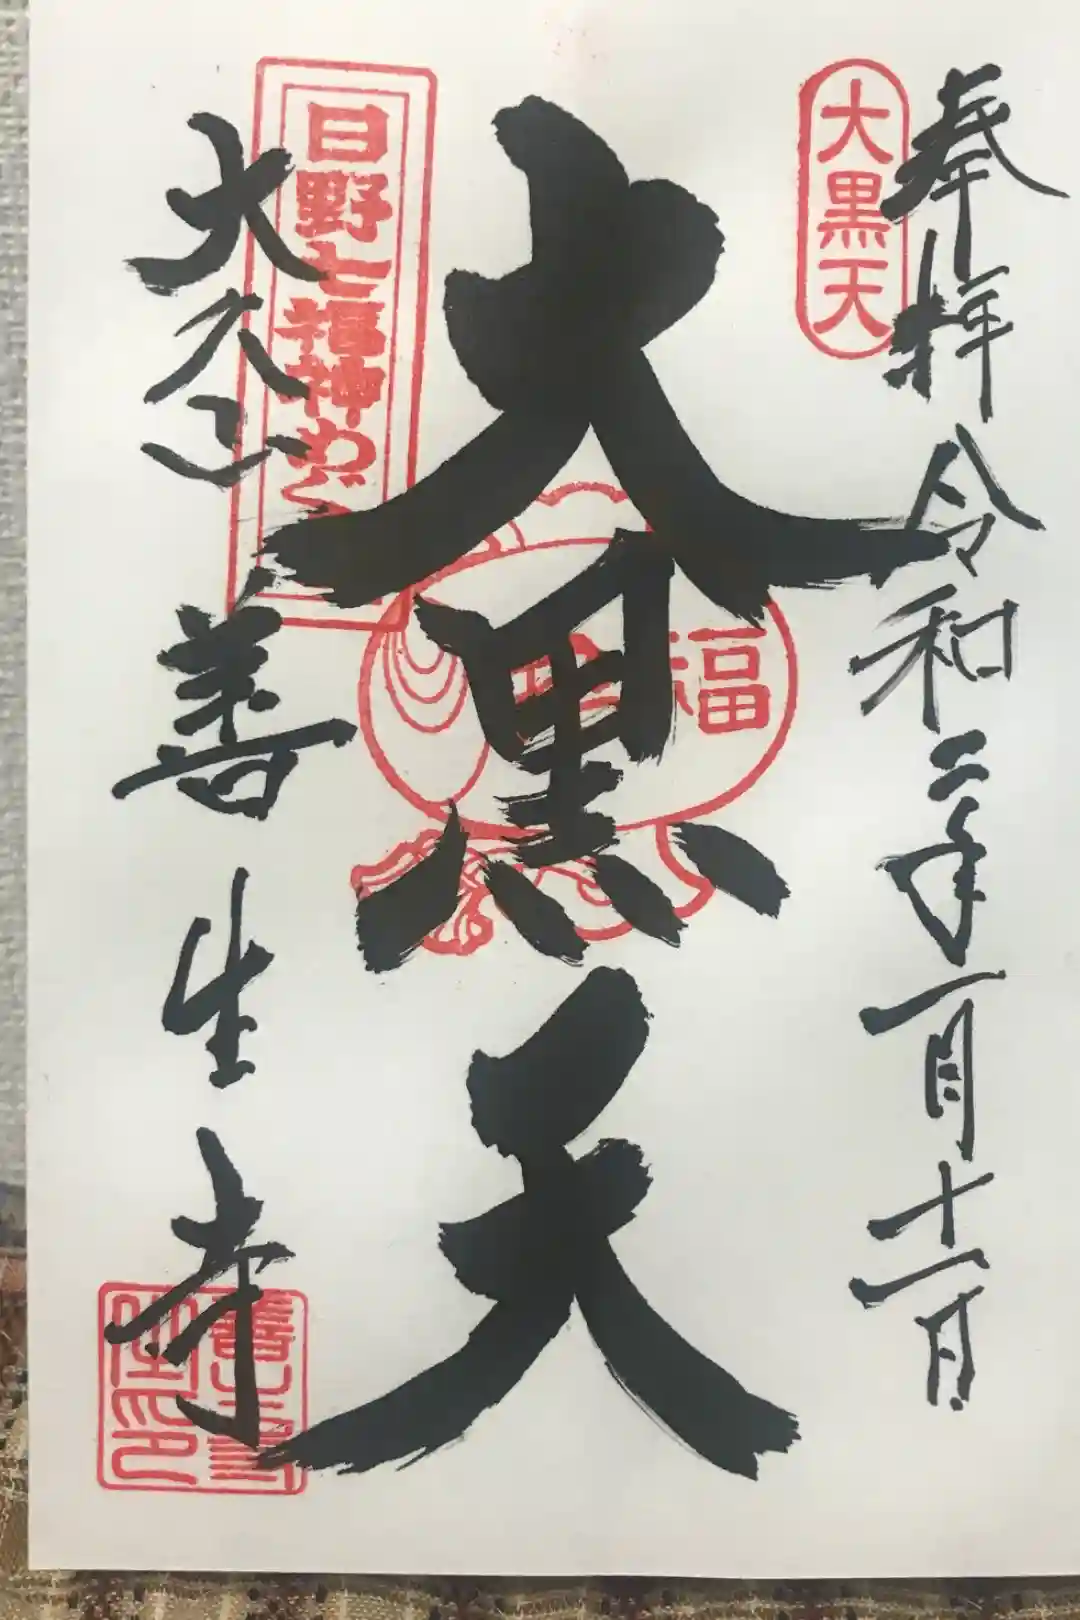 奉拝 令和二年一月十一日
大黒天
大黒天
福
日野七福神めぐ
大久山 善生寺